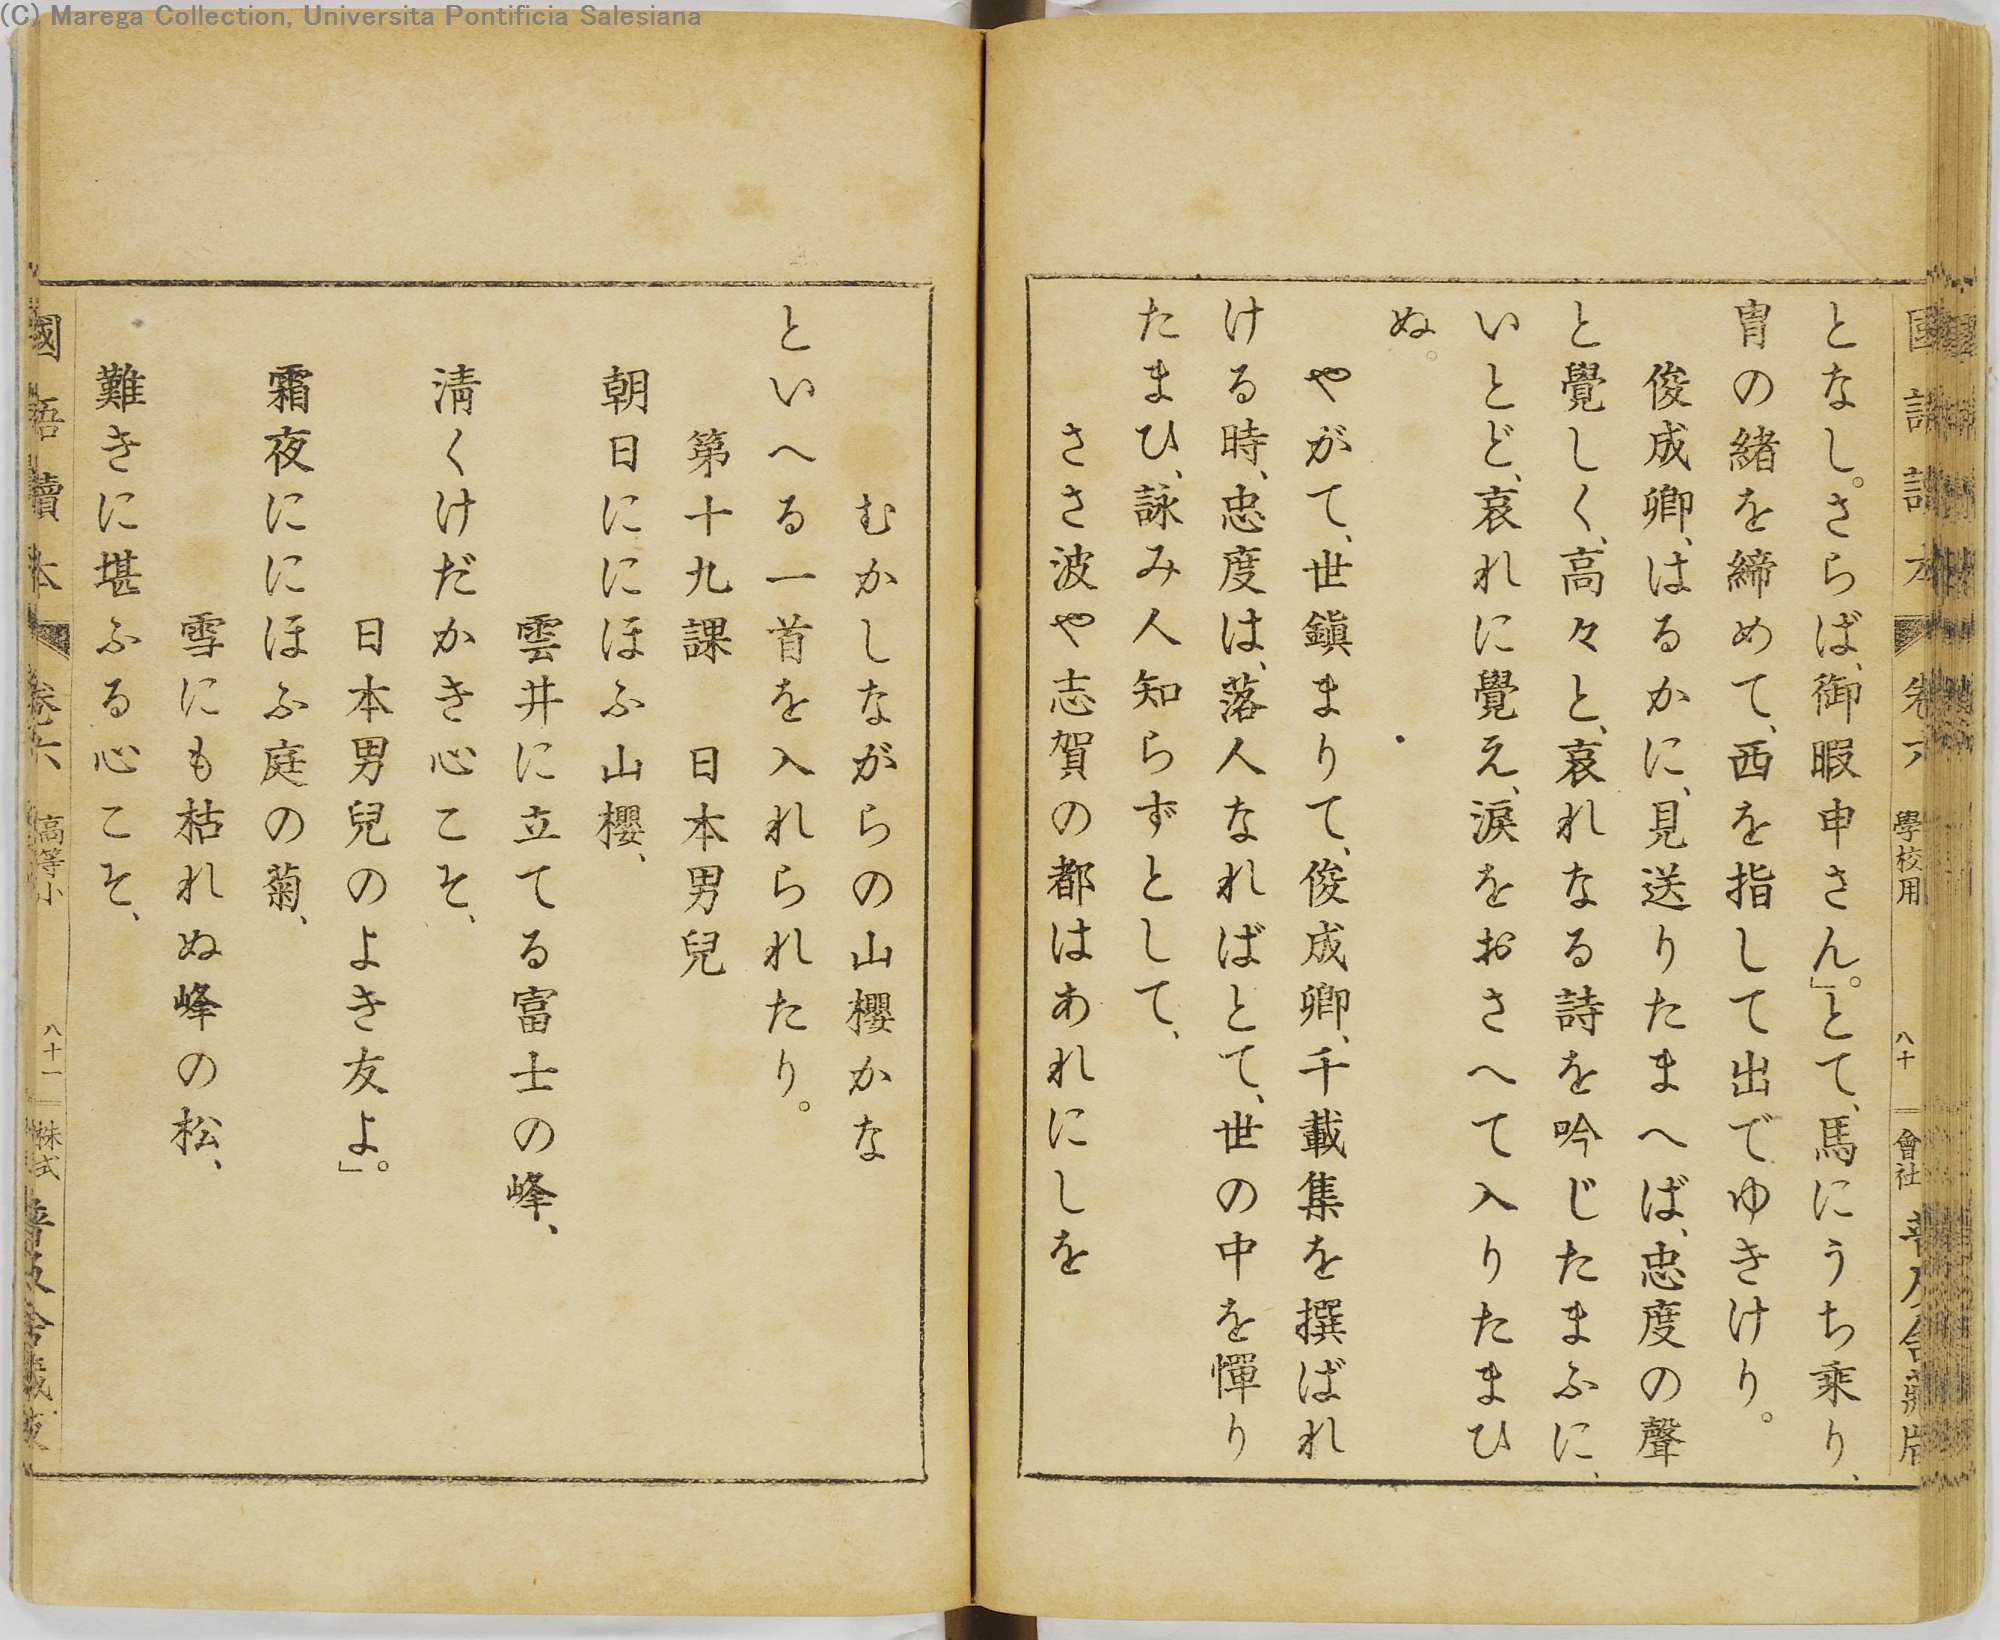 (C) Marega Collection, Universita Pontificia Salesiana
學校用
八十
會社
となし。さらば、御暇申さん。」とて、馬にうち乘り、
冑の緒を締めて、西を指して出でゆきけり。
俊成卿、はるかに、見送りたまへば、忠度の聲
と覺しく、高々と、哀れなる詩を吟じたまふに、
いとど、哀れに覺え、淚をおさへて入りたまひ
ぬ。
やがて、世鎭まりて、俊成卿、千載集を撰ばれ
ける時、忠度は、落人なればとて、世の中を憚り
たまひ、詠み人知らずとして、
ささ波や志賀の都はあれにしを
むかしながらの山櫻かな
といへる一首を入れられたり。
第十九課 日本男兒
朝日ににほふ山櫻、
雲井に立てる富士の峰、
淸くけだかき心こそ、
日本男兒のよき友よ。」
霜夜ににほふ庭の菊、
雪にも枯れぬ峰の松、
難きに堪ふる心こそ、
國語讀本 卷六 高等小 八十一 株式